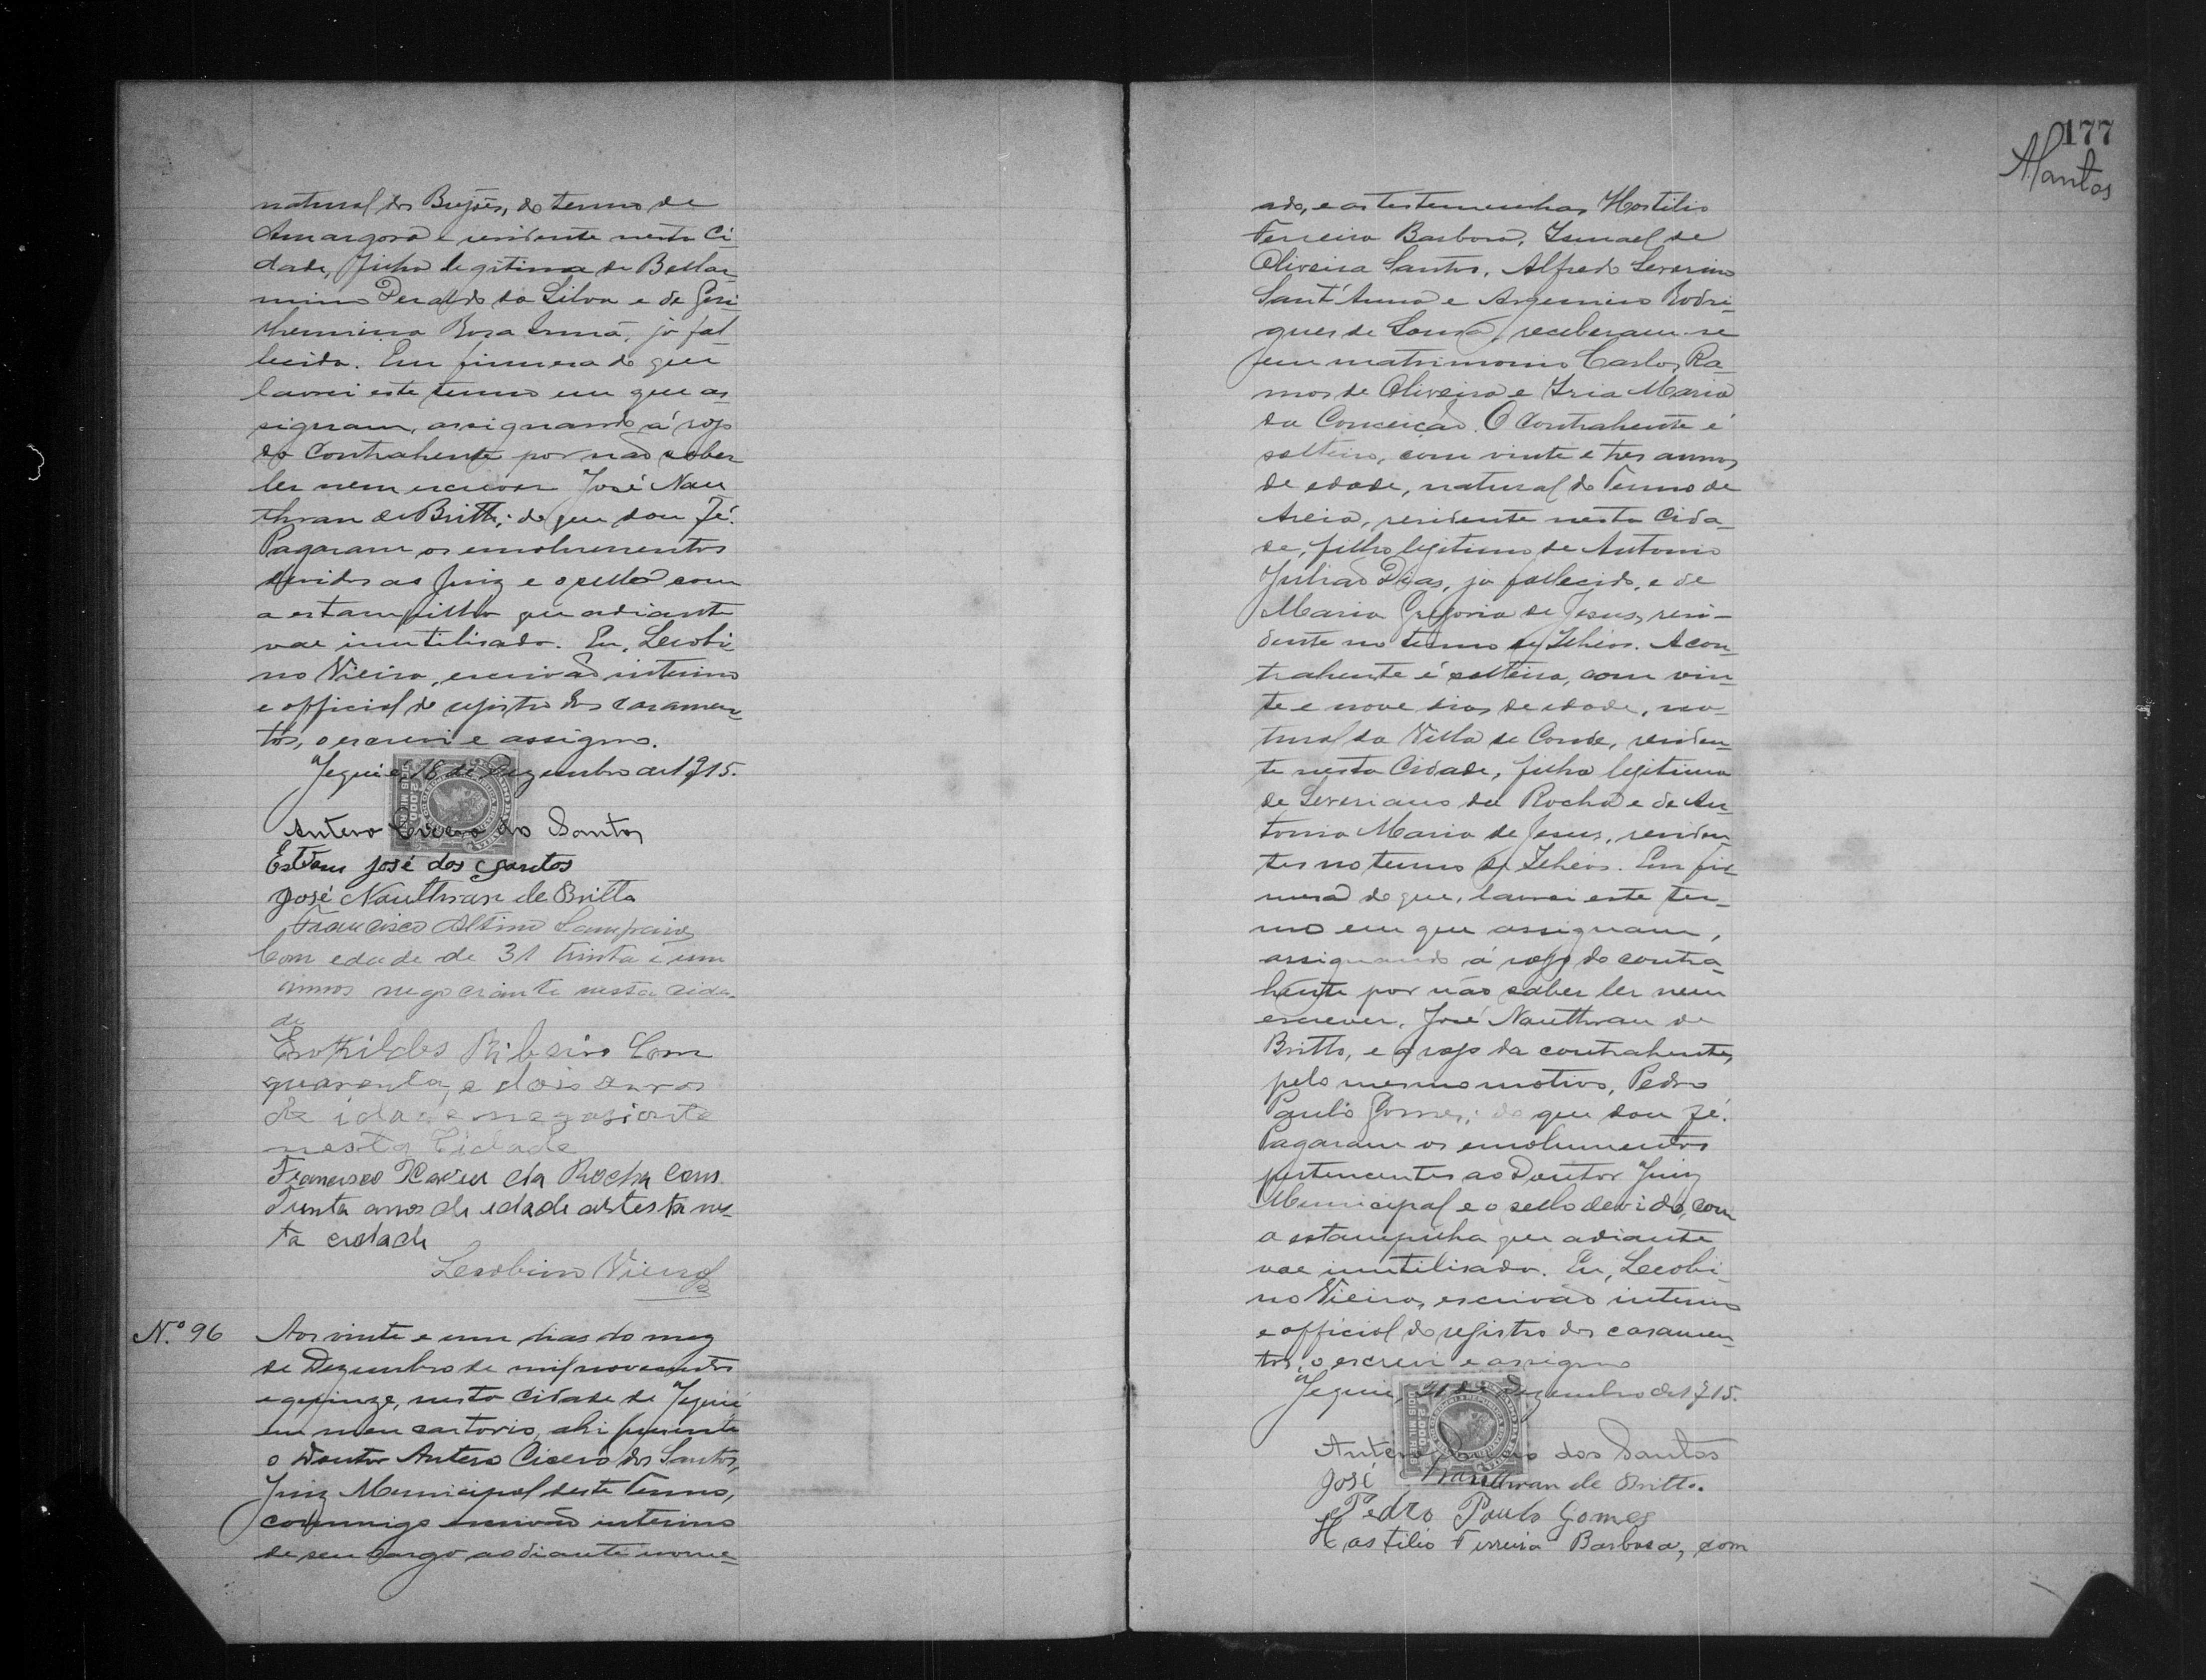 natural dos Brejões, do termo de
Amargosa e residente nesta Ci-
dade, filha legitima de Bellar-
mino Peraldo da Silva e de
Rosa Anna, já fal-
lecida. Em firmesa do que
lavrei este termo em que as-
signam, assignando á rogo
da Contrahente por não saber
ler nem escrever José Nau-
thman de Britto; do que dou fé.
Pagaram os emolumentos
devidos ao Juiz e o sello com
a estampilha que adiante
vae inutilisada. Eu, Leсobi-
no Vieira, escrivão interino
e official do registro dos casamen-
tos, o escrevi e assigno.
Jequié, 18 de Dezembro de 1915.
Antero Cicero dos Santos
Estevam José dos Santos
José Nauthman de Britto
Francisco Altino Sampaio
Com edade de 31 trinta e um
annos negociante nesta cida-
de
Ribeiro Com
quarenta e dois annos
de idade negosiante
nesta Cidade
Francisco Xavier da Rocha Com
Trenta anos de edade artesta nes-
ta cidade
Lecobino Vieira
N.º 96 Aos vinte e um dias do mez
de Dezembro de mil novecentos
e quinze, nesta Cidade de Jequié
em meu cartorio, ahi presente
o Doutor Antero Cicero dos Santos,
Juiz Municipal deste Termo,
commigo escrivão interino
de seu cargo aodiante nome-
177
ASantos
ado, e as testemunhas Hostilio
Ferreira Barbosa, Ismael de
Oliveira Santos, Alfredo Severino
Sant'Anna e Argemiro Rodri-
gues de Sousa, receberam-se
em matrimonio Carlos Ra-
mos de Oliveira e Iria Maria
da Conceição. O Contrahente é
solteiro, com vinte e tres annos
de edade, natural do Termo de
Areia, residente nesta Cida-
de, filho legitimo de Antonio
Julião Dias, já fallecido, e de
Maria Gregoria de Jesus, resi-
dente no termo de Ilhéos. A con-
trahente é solteira, com vin-
te e nove dias de edade, na-
tural da Villa de Conde, residen-
te nesta Cidade, filha legitima
de Severiano da Rocha e de An-
tonia Maria de Jesus, residen-
tes no termo de Ilhéos. Em fir-
mesa do que, lavrei este ter-
mo em que assignam,
assignando á rogo do contra-
hente por não saber ler nem
escrever, José Nauthman de
Britto, e a rogo da contrahente,
pelo mesmo motivo, Pedro
Paulo Gomes; do que dou fé.
Pagaram os emolumentos
pertencentes ao Doutor Juiz
Municipal e o sello devido, com
a estampilha que adiante
vae inutilisada. Eu, Lecobi-
no Vieira, escrivão interino
e official do registro dos casamen-
tos, o escrevi e assigno
Jequié, 21 de Dezembro de 1915.
Antero Cicero dos Santos
José Nauthman de Britto.
Pedro Paulo Gomes
Hostilio Ferreira Barbosa, com